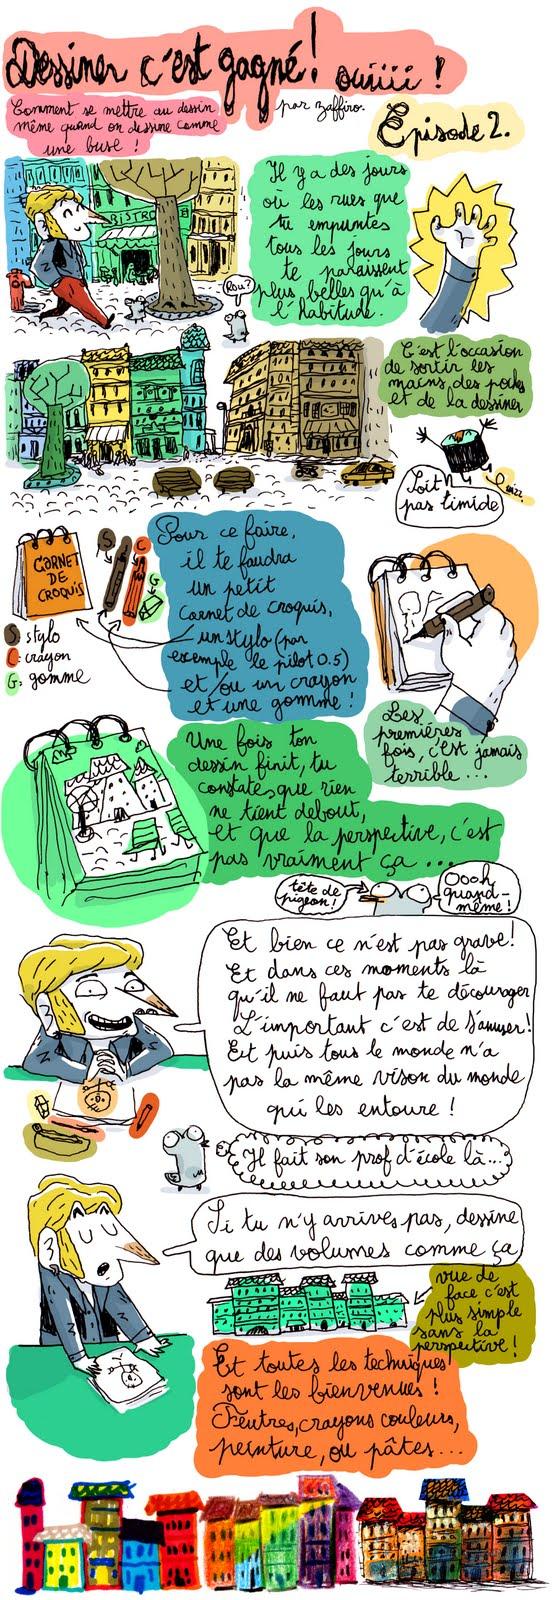 Dessiner c'est gagné! ouiiii !
Comment se mettre au dessin
même quand on dessine comme
une buse !
par zaffiro.
Épisode 2.
BISTRO
Il y a des jours
où les rues que
tu empruntes
tous les jours
te paraissent
plus belles qu'à
l'habitude.
Rou?
C'est l'occasion
de sortir les
mains des poches
et de la dessiner
Soit
pas timide
CARNET
DE
CROQUIS
S
C
G
S: stylo
C: crayon
G: gomme
Pour ce faire,
il te faudra
un petit
carnet de croquis,
un stylo (par
exemple le pilot 0.5)
et /ou un crayon
et une gomme !
Les
premières
fois, c'est jamais
terrible ...
Une fois ton
dessin finit, tu
constates que rien
ne tient debout,
et que la perspective, c'est
pas vraiment ça ...
tête de
pigeon!
Oooh
quand-
même !
Et bien ce n'est pas grave!
Et dans ces moments là
qu'il ne faut pas te décourager
L'important c'est de s'amuser!
Et puis tous le monde n'a
pas la même vison du monde
qui les entoure !
Il fait son prof d'école là...
Si tu n'y arrives pas, dessine
que des volumes comme ça
vue de
face c'est
plus simple
sans la
perspective!
Et toutes les techniques
sont les bienvenues !
Feutres, crayons couleurs,
peinture, ou pâtes...